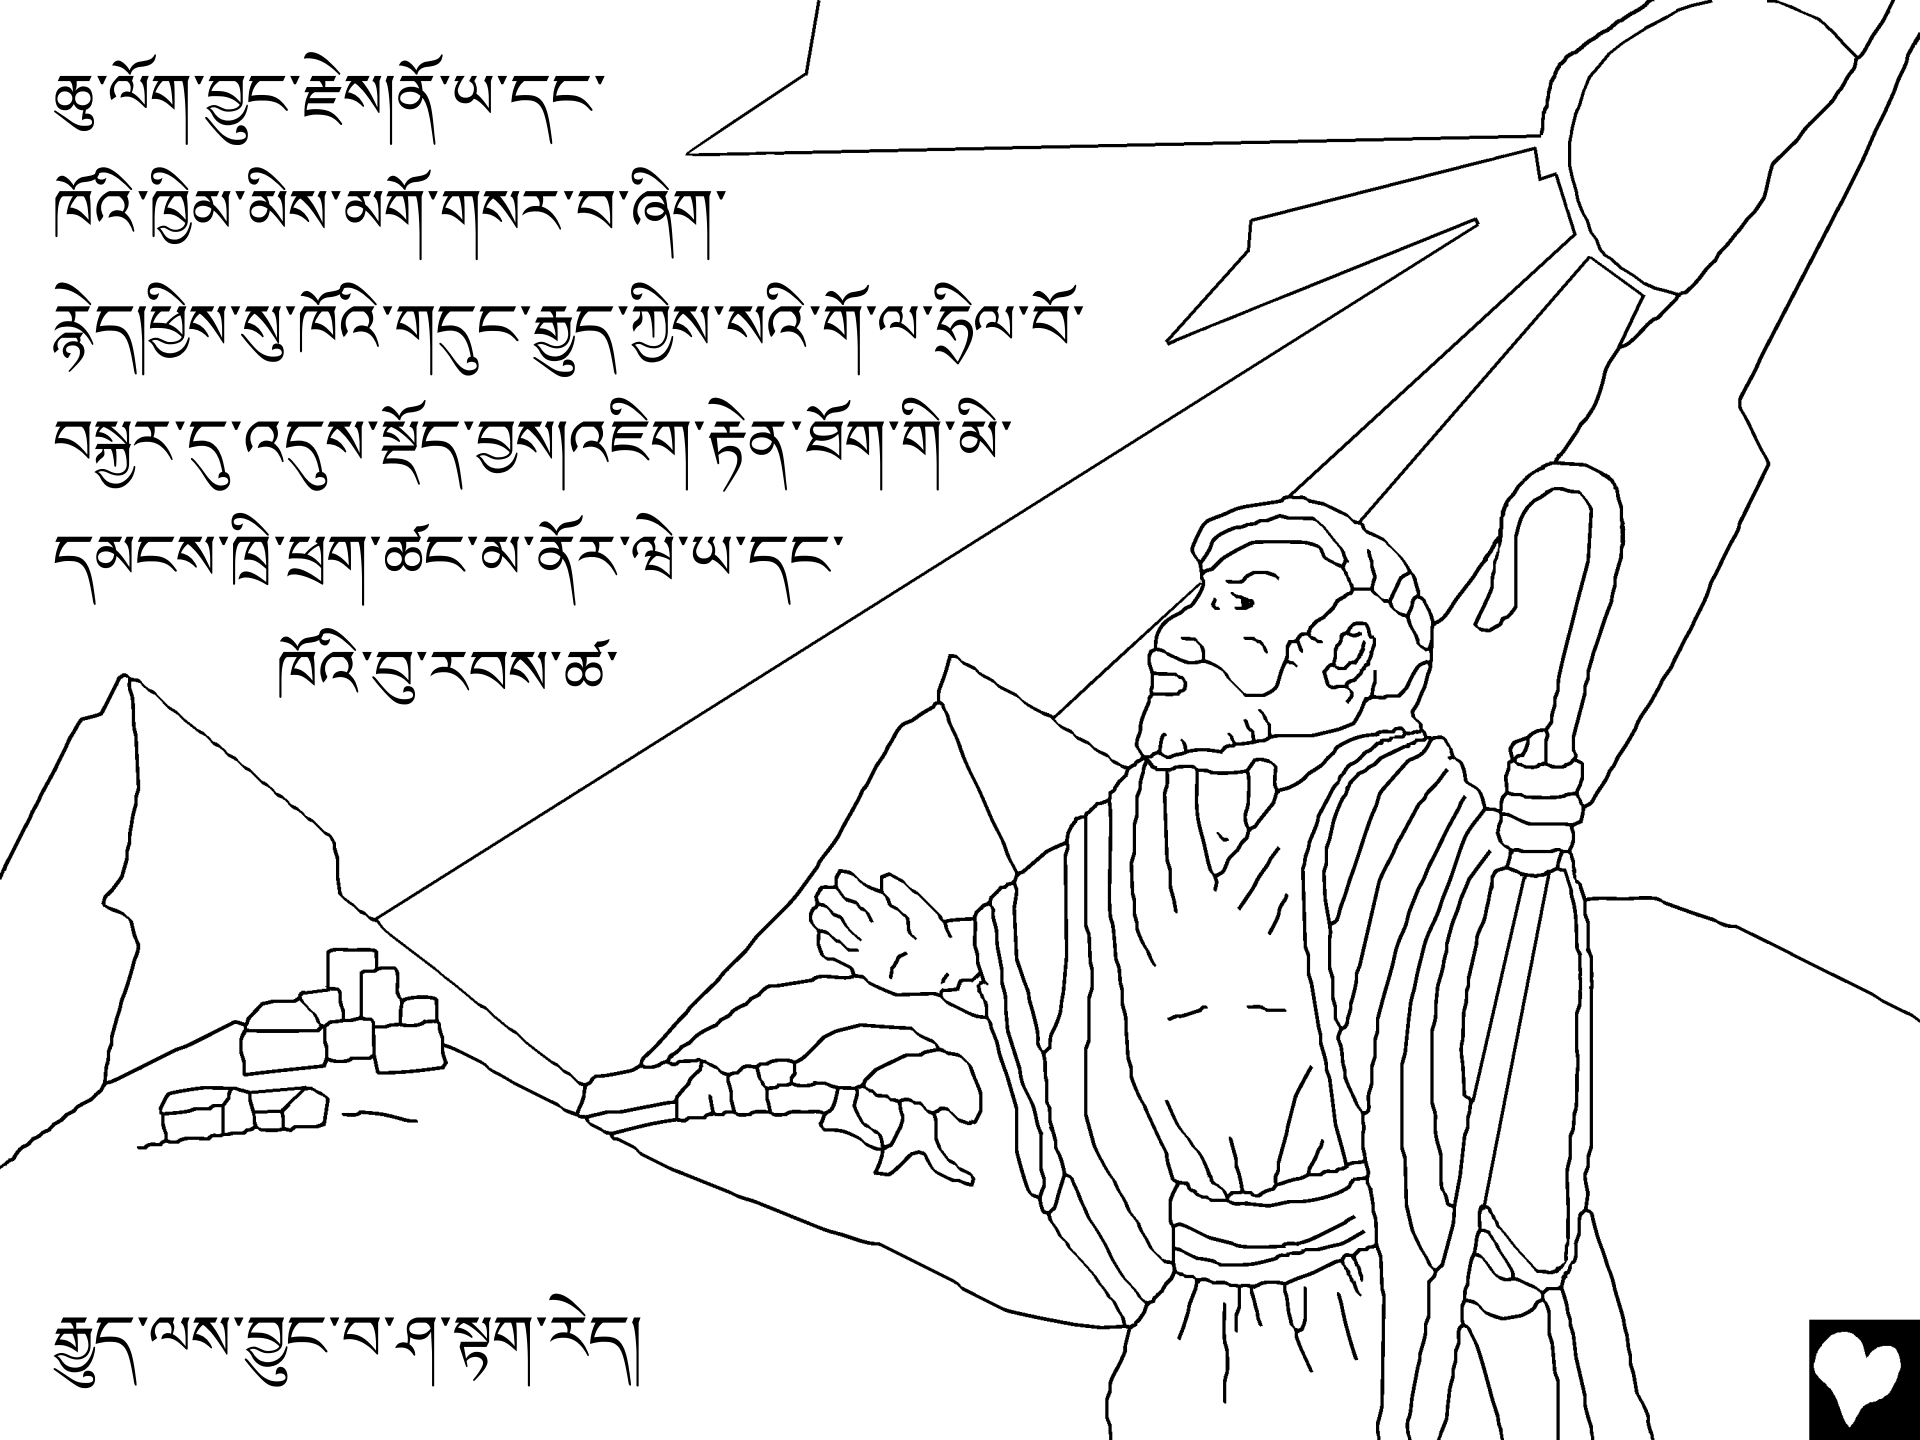 ཆུ་ལོག་བྱུང་རྗེས།ནོ་ཡ་དང་
ཁོའི་ཁྱིམ་མིས་མགོ་གསར་བ་ཞིག་
རྙེད།ཕྱིས་སུ་ཁོའི་གདུང་རྒྱུད་ཀྱིས་སའི་གོ་ལ་ཧྲིལ་བོ་
བསྐྱར་དུ་འདུས་སྡོད་བྱས།འཇིག་རྟེན་ཐོག་གི་མི་
དམངས་ཁྲི་ཕྲག་ཚང་མ་ནོར་ཝེ་ཡ་དང་
ཁོའི་བུ་རབས་ཚ་
རྒྱུད་ལས་བྱུང་བ་ཤ་སྟག་རེད།